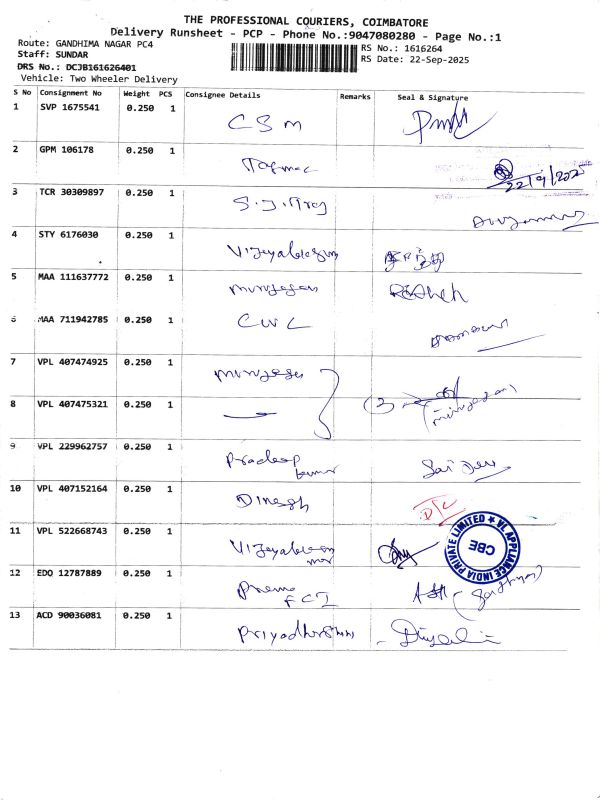 THE PROFESSIONAL COURIERS, COIMBATORE
Delivery Runsheet - PCP - Phone No.:9047080280 - Page No.:1
Route: GANDHIMA NAGAR PC4
Staff: SUNDAR
DRS No.: DCJB161626401
Vehicle: Two Wheeler Delivery
RS No.: 1616264
RS Date: 22-Sep-2025
S No Consignment No Weight PCS Consignee Details Remarks Seal & Signature
1 SVP 1675541 0.250 1 CSM
2 GPM 106178 0.250 1 22/9/2025
3 TCR 30309897 0.250 1
4 STY 6176030 0.250 1
5 MAA 111637772 0.250 1 murugesan
6 MAA 711942785 0.250 1 CWC
7 VPL 407474925 0.250 1
8 VPL 407475321 0.250 1
9 VPL 229962757 0.250 1 Pradeep kumar
10 VPL 407152164 0.250 1 Dinesh D/C
11 VPL 522668743 0.250 1
VL APPLIANCE INDIA PRIVATE LIMITED ★ CBE
12 EDQ 12787889 0.250 1 Prema FCI
13 ACD 90036081 0.250 1